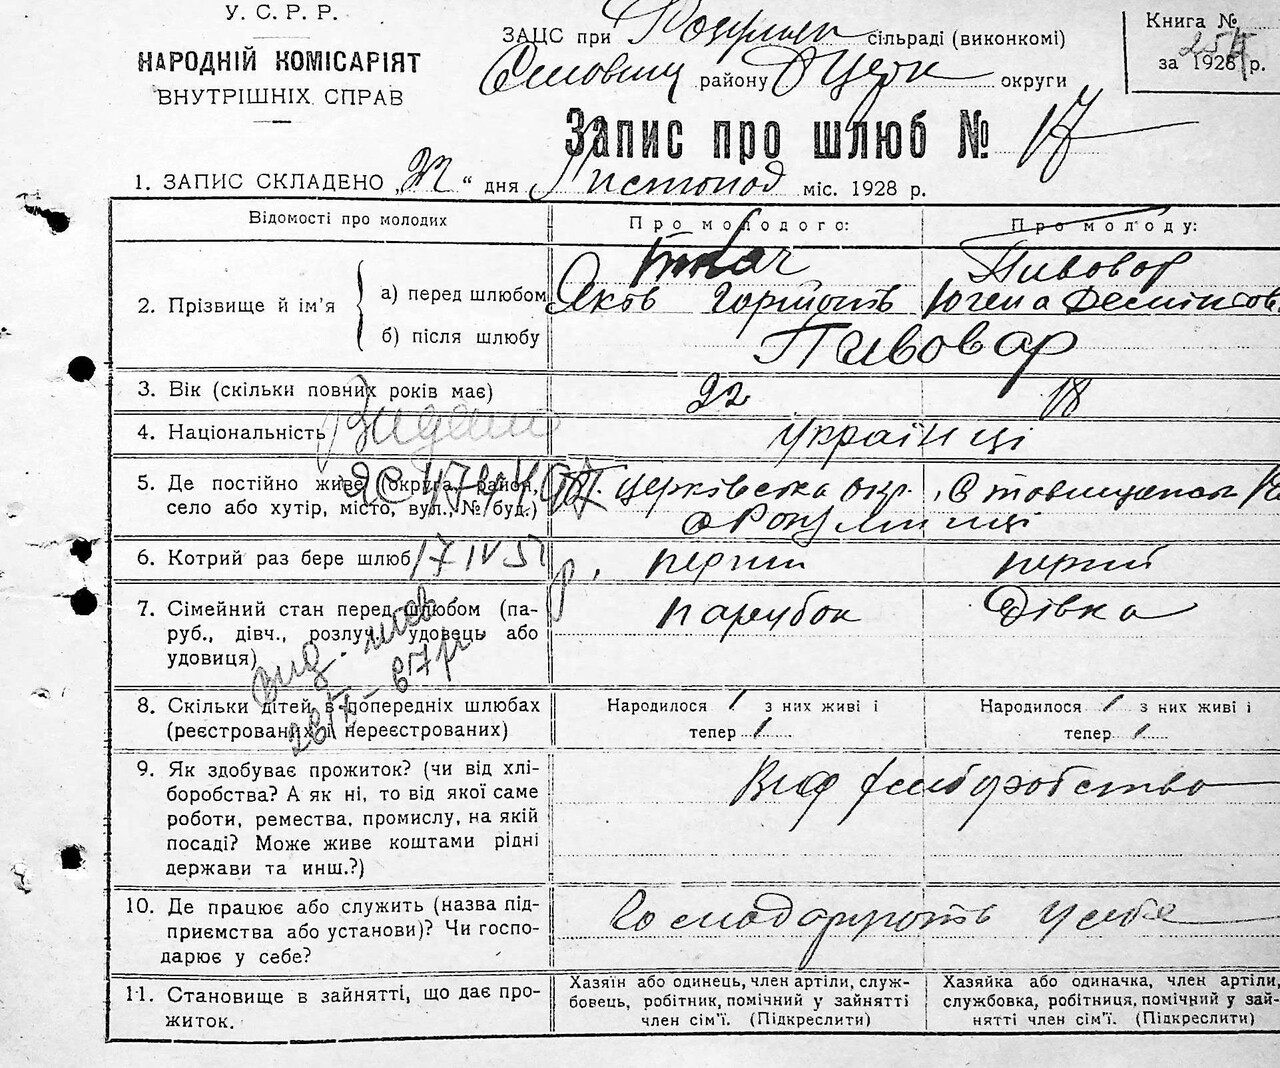 У.С.Р.Р.
НАРОДНІЙ КОМІСАРІЯТ
ВНУТРІШНІХ СПРАВ
ЗАЦС при сільраді (виконкомі)
району округи
Книга №
за 1928 р.
Запис про шлюб № 17
1. ЗАПИС СКЛАДЕНО „22“ дня Листопод міс. 1928 р.
Відомості про молодих
Про молодого:
Про молоду:
2. Прізвище й ім'я
а) перед шлюбом
б) після шлюбу
Ткач
Яков
Пивовар
Югена
Пивовар
3. Вік (скільки повних років має)
22
18
4. Національність
українці
5. Де постійно живе (округа, район,
село або хутір, місто, вул., № буд.)
Церківська окр.
6. Котрий раз бере шлюб
перший
перший
7. Сімейний стан перед шлюбом (па-
руб., дівч., розлуч., удовець або
удовиця)
парубок
дівка
8. Скільки дітей в попередніх шлюбах
(реєстрованих і нереєстрованих)
Народилося / з них живі і
тепер /
Народилося / з них живі і
тепер /
9. Як здобуває прожиток? (чи від хлі-
боробства? А як ні, то від якої саме
роботи, ремества, промислу, на якій
посаді? Може живе коштами рідні
держави та инш.?)
Від хліборобства
10. Де працює або служить (назва під-
приємства або установи)? Чи госпо-
дарює у себе?
Господарюють у себе
11. Становище в зайнятті, що дає про-
житок.
Хазяїн або одинець, член артіли, служ-
бовець, робітник, помічний у зайнятті
член сім'ї. (Підкреслити)
Хазяйка або одиначка, член артіли,
службовка, робітниця, помічний у зай-
нятті член сім'ї. (Підкреслити)